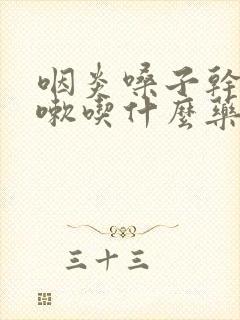 咽炎嗓子幹
嗽喫什麼藥
三十三